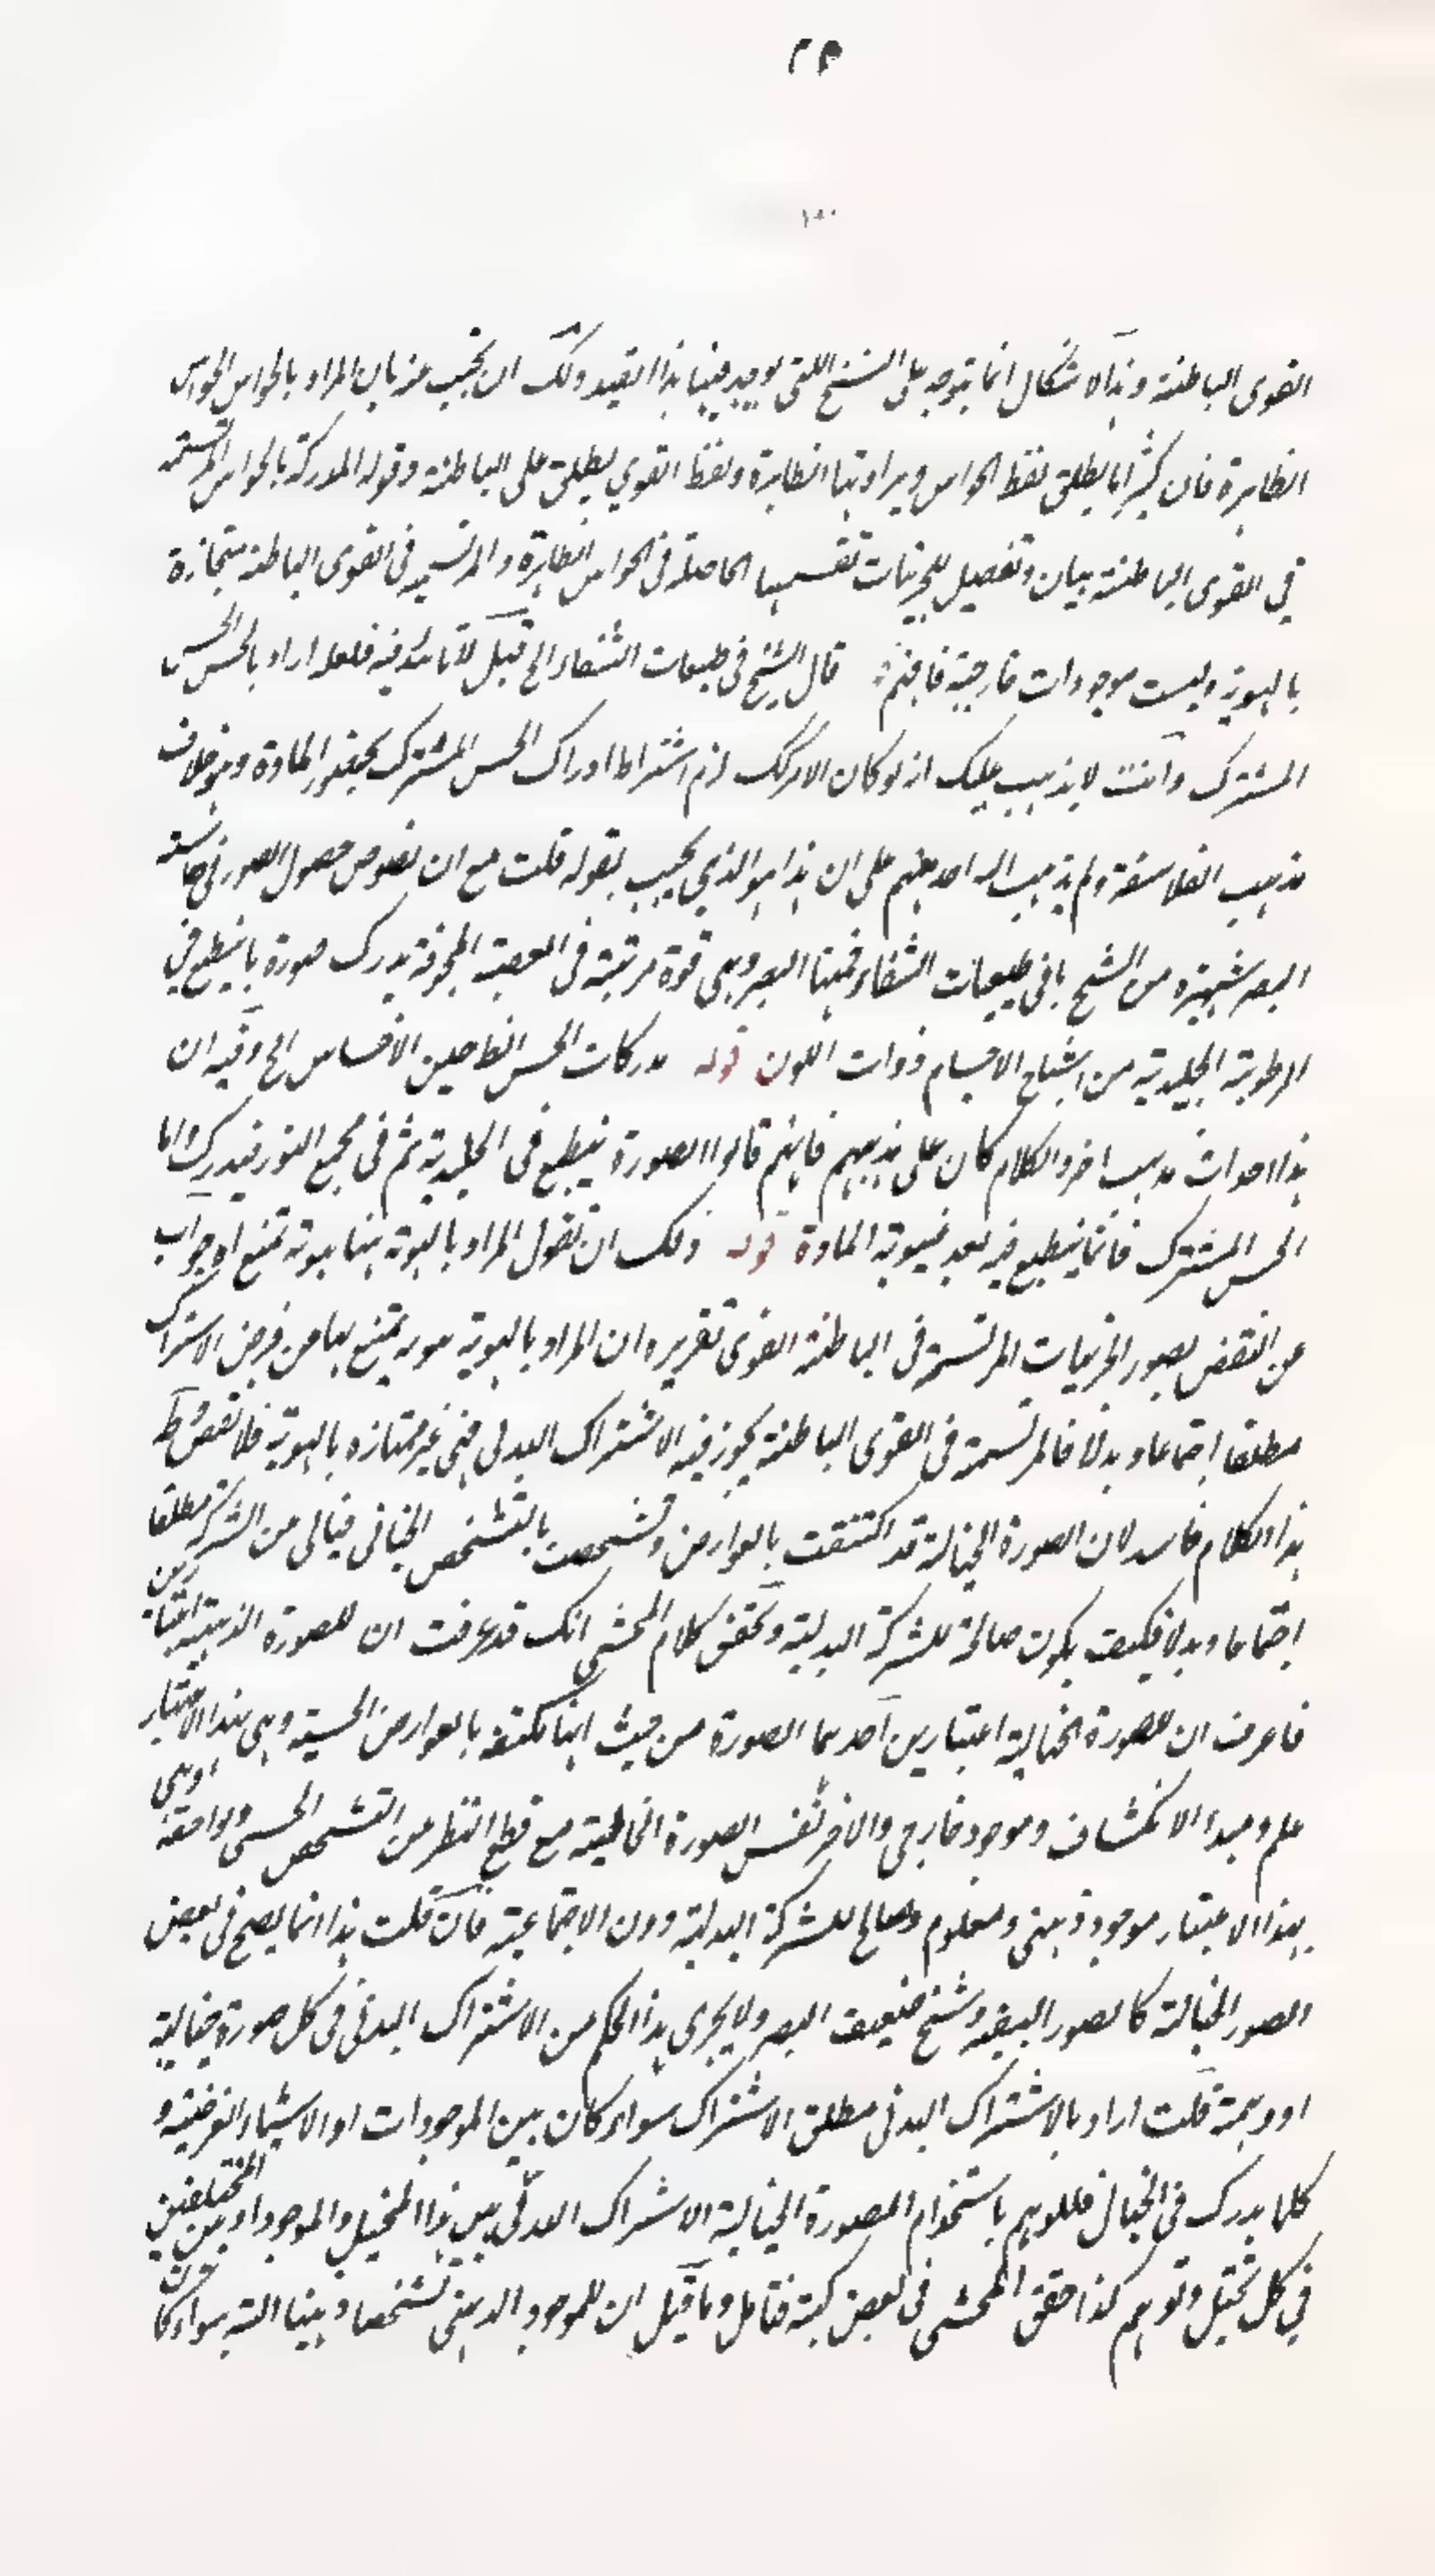 ٢٩
القوى الباطنة وهذا الاشكال انما يتوجه على النسخ اللتي يوجد فيها هذا القيد ولك ان تجيب عنه بان المراد بالحواس الحواس
الظاهرة فان كثيرا ما يطلق لفظ الحواس ويراد بها الظاهرة ولفظ القوي يطلق على الباطنة وقوله المدركة بالحواس المرتسمة
في القوى الباطنة بيان وتفصيل للجزئيات تقسيمها الحاصلة في الحواس الظاهرة والمرتسمة في القوى الباطنة ممتازة
بالهوية وليست موجودات خارجية فافهم قال الشيخ في طبيعات الشفاء الخ قيل لا تائيد فيه فلعله اراد بالحس الحس
المشترك وانت لا يذهب عليك انه لو كان الامر كك لزم اشتراط ادراك الحس المشترك بحضور المادة وهو خلاف
مذهب الفلاسفة ولم يذهب اليه احد منهم على ان هذا هو الذي يجيب بقوله قلت مع ان نصوص حصول الصور في حاسة
البصر شهيرة من الشيخ ما في طبيعات الشفاء فمنها البصر وهي قوة مرتبة في العصبة المجوفة يدرك صورة ما ينطبع في
الرطوبة الجليدية من اشباح الاجسام ذوات اللون قوله مدركات الحس الظ حين الاحساس الخ وفيه ان
هذا احداث مذهب اخر والكلام كان على مذهبهم فانهم قالوا الصورة ينطبع في الجليدية ثم في مجمع النور فيدرك واما
الحس المشترك فانما ينطبع فيه بعد غيبوبة المادة قوله ولك ان تقول المراد بالهوية ههنا هوية تمنع اه جواب
عن النقض بصور الجزئيات المرتسمة في الباطنة القوى تقريره ان المراد بالهوية هوية يمتنع بها من فرض الاشتراك
مطلقا اجتماعا وبدلا فالمرتسمة في القوى الباطنة يجوز فيه الاشتراك البدلي فهي غير ممتازه بالهوية فلا نقض وظ
هذا الكلام فاسد لان الصورة الخيالية قد اكتنفت بالعوارض وتشخصت بالتشخص الخيالي من الشركة مطلقا
اجتماعا وبدلا فكيف يكون صالحة للشركة البدلية وتحقق كلام المحشي انك قد عرفت ان للصورة الذهنية اعتبارين
فاعرف ان للصورة الخيالية اعتبارين احدهما الصورة من حيث انها مكتنفة بالعوارض الحسية وهي بهذا الاعتبار
علم ومبدا الانكشاف وموجود خارجي والاخر نفس الصورة مع قطع النظر عن التشخص الحسي ولواحقه وهي
بهذا الاعتبار موجود ذهني ومعلوم وصالح للشركة البدلية دون الاجتماعية فان قلت هذا انما يصح في بعض
الصور الخيالية كالصور البيضة وشبح ضعيف البصر ولا يجري هذا الحكم من الاشتراك البدلي في كل صورة خيالية
او وهمية قلت اراد بالاشتراك البدلي مطلق الاشتراك سواء كان بين الموجودات او الاشياء الفرضية و
كلما يدرك في الخيال فللوهم باستخدام الصورة الخيالية الاشتراك البدلي بين هذا المخيل والموجود او بين المختلفين
في كل تخيل وتوهم كذا حقق المحشي في بعض كتبه فتامل وما قيل ان للموجود الذهني تشخصا وهينا البتة سواء كان